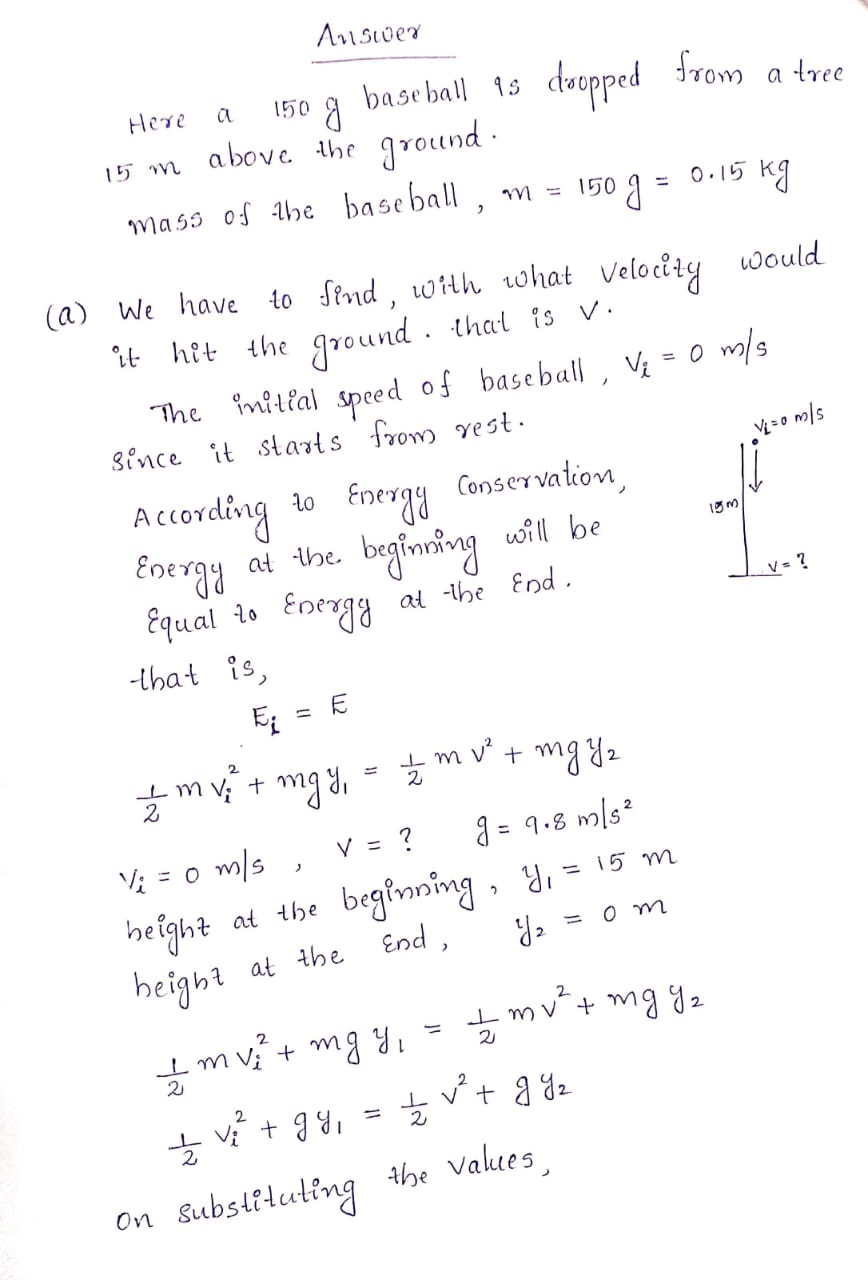 Answer
Here a 150 g baseball is dropped from a tree
15 m above the ground.
mass of the baseball, m = 150 g = 0.15 kg
(a) We have to find, with what velocity would
it hit the ground. that is v.
The initial speed of baseball, Vᵢ = 0 m/s
since it starts from rest.
Vᵢ=0 m/s
15m
V=?
According to Energy Conservation,
Energy at the beginning will be
Equal to Energy at the End.
that is,
Eᵢ = E
1/2 m vᵢ² + mg y₁ = 1/2 m v² + mg y₂
Vᵢ = 0 m/s , V = ? g = 9.8 m/s²
height at the beginning, y₁ = 15 m
height at the End, y₂ = 0 m
1/2 m vᵢ² + mg y₁ = 1/2 m v² + mg y₂
1/2 vᵢ² + g y₁ = 1/2 v² + g y₂
on substituting the values,